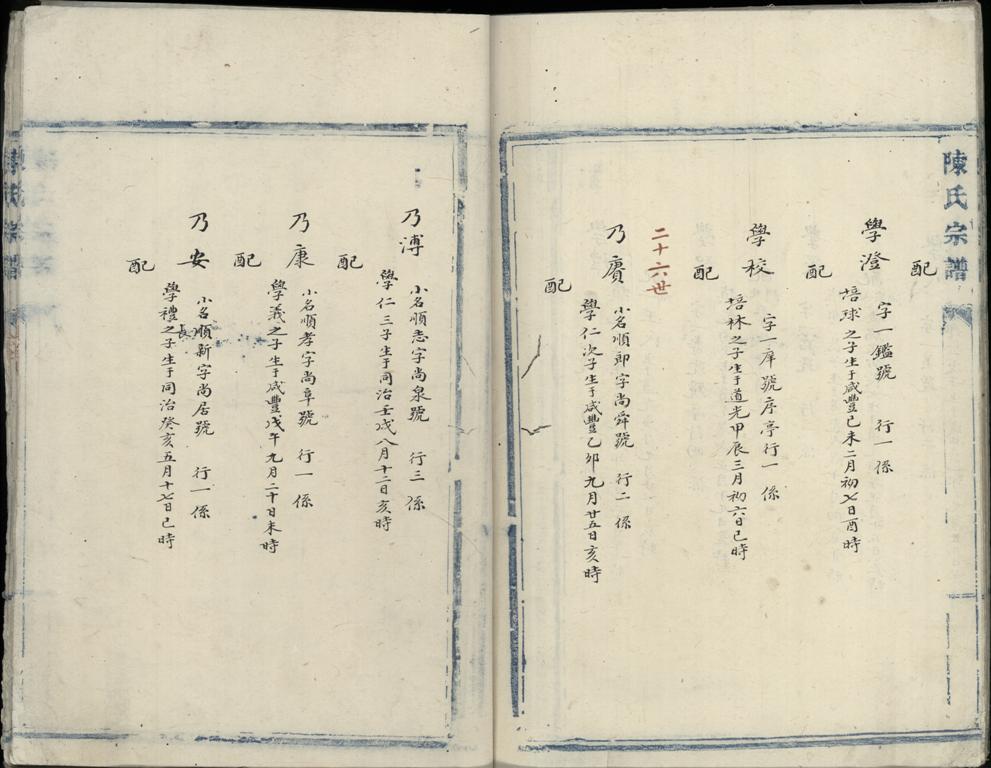 陳氏宗譜
配
學澄
字一鑑號 行一 係
培球之子生于咸豐己未二月初七日酉時
配
學校
字一庠號序亭行一 係
培林之子生于道光甲辰三月初六日巳時
配
二十六世
乃賡
小名順郎字尚舜號 行二 係
學仁次子生于咸豐乙卯九月廿五日亥時
配
乃溥
小名順志字尚泉號 行三 係
學仁三子生于同治壬戌八月十二日亥時
配
乃康
小名順孝字尚章號 行一 係
學義之子生于咸豐戊午九月二十日未時
配
乃安
小名順新字尚居號 行一 係
學禮之長子生于同治癸亥五月十七日巳時
配
陳氏宗譜